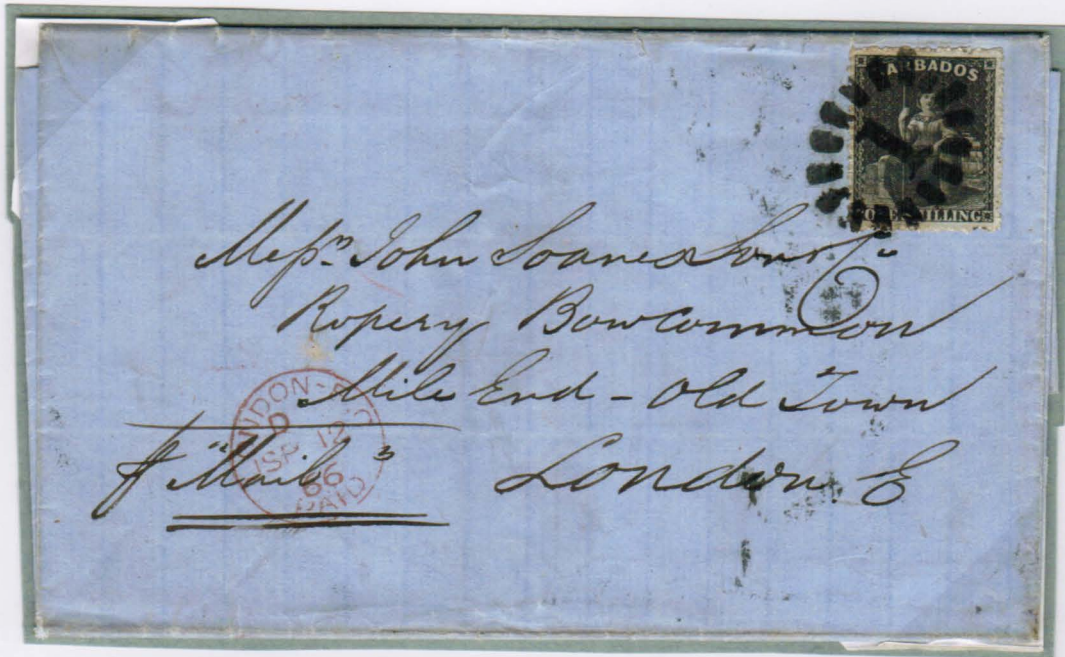 BARBADOS
1
ONE SHILLING
Messrs. John Soanes Son &
Ropery Bow Common
Mile End - Old Town
London. E
"Mail"
LONDON-E.C
D
SP 12
66
PAID